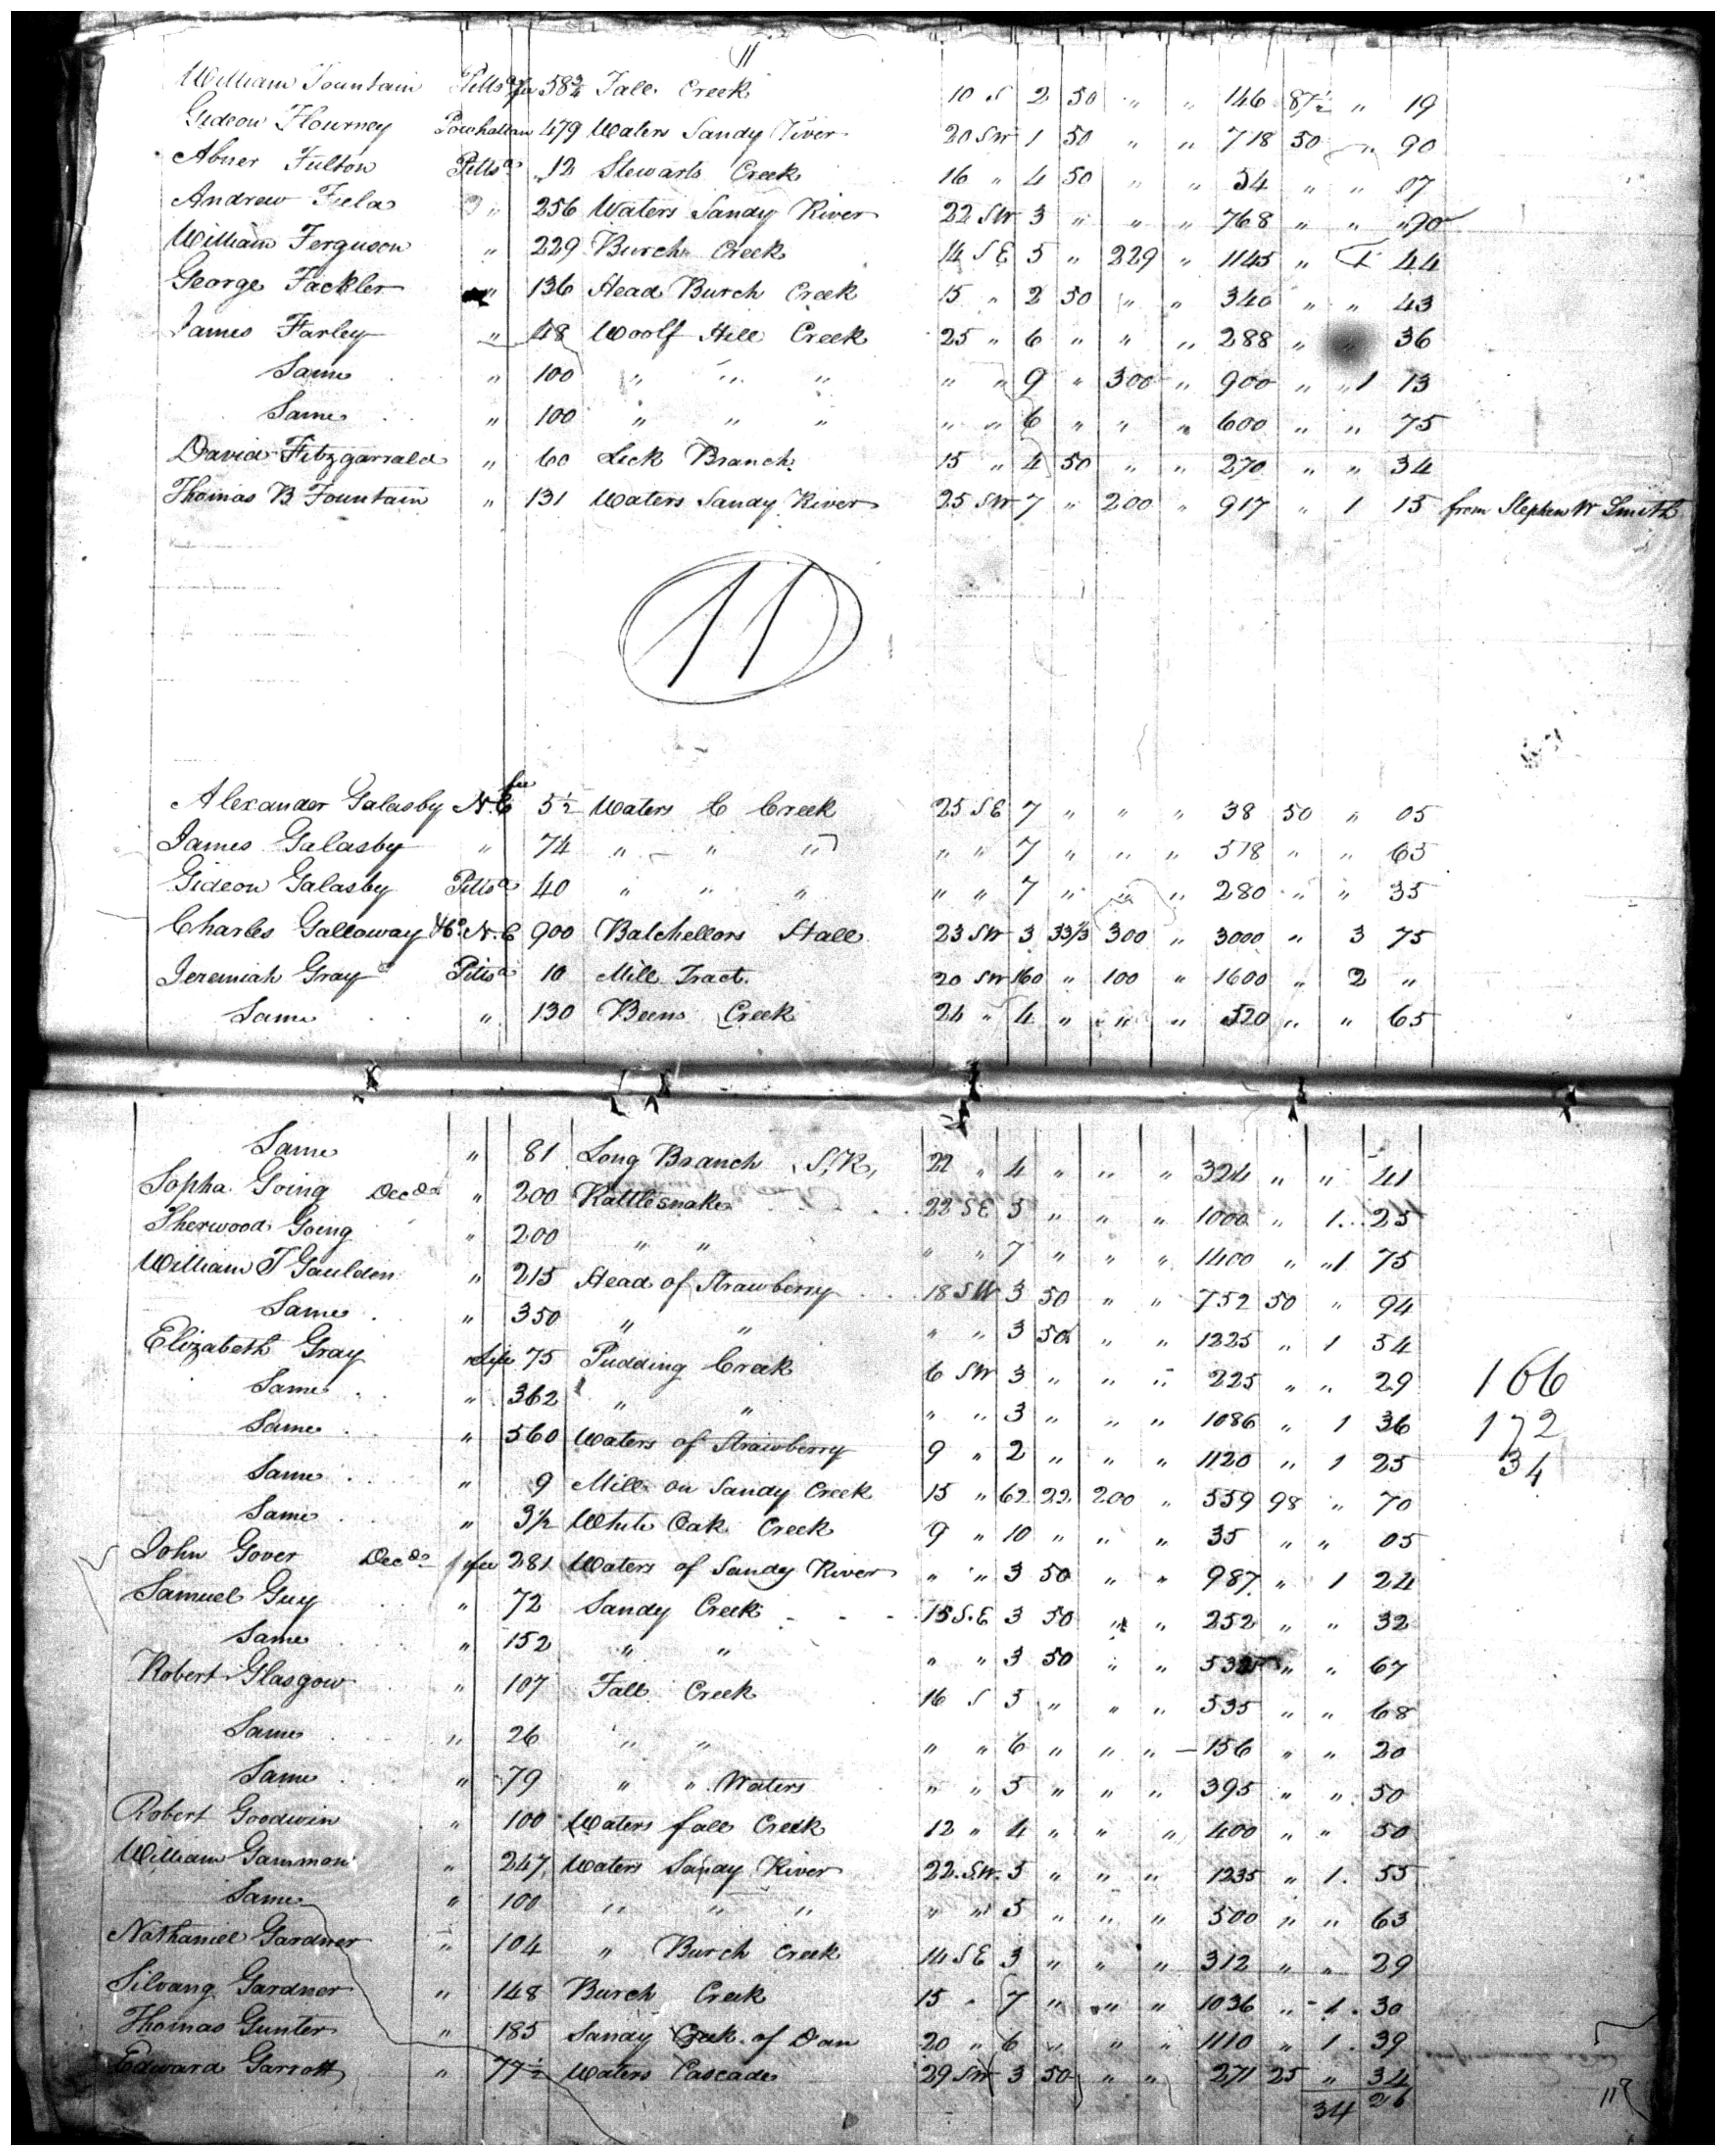 11
William Fountain Pittsa fee 58¾ Fall Creek 10 S 2 50 " " 146 87½ " 19
Gideon Flourney Powhattan 479 Waters Sandy River 20 SW 1 50 " " 718 50 " 90
Abner Fulton Pittsa 12 Stewarts Creek 16 " 4 50 " " 54 " " 07
Andrew Fiela " 256 Waters Sandy River 22 SW 3 " " " 768 " " 90
William Ferguson " 229 Burch Creek 14 SE 5 " 229 " 1145 " 1 44
George Fackler " 136 Head Burch Creek 15 " 2 50 " " 340 " " 43
James Farley " 48 Woolf Hill Creek 25 " 6 " " " 288 " " 36
Same " 100 " " " " " 9 " 300 " 900 " 1 13
Same " 100 " " " " " 6 " " " 600 " " 75
David Fitzgarrald " 60 Lick Branch 15 " 4 50 " " 270 " " 34
Thomas B Fountain " 131 Waters Sandy River 25 SW 7 " 200 " 917 " 1 15 from Stephen W Smith
11
Alexander Galasby N.C fee 5½ Waters C Creek 25 SE 7 " " " 38 50 " 05
James Galasby " 74 " " " " " 7 " " " 518 " " 65
Gideon Galasby Pittsa 40 " " " " " 7 " " " 280 " " 35
Charles Galloway &Co N.C 900 Batchellors Hall 23 SW 3 33⅓ 300 " 3000 " 3 75
Jeremiah Gray Pittsa 10 Mill Tract. 20 SW 160 " 100 " 1600 " 2 "
Same " 130 Beens Creek 24 " 4 " " " 520 " " 65
Same " 81 Long Branch S.R. 22 " 4 " " " 324 " " 41
Sopha Going Decd " 200 Rattlesnake 22 SE 5 " " " 1000 " 1 25
Sherwood Going " 200 " " " " 7 " " " 1400 " 1 75
William T Gaulden " 215 Head of Strawberry 18 SW 3 50 " " 752 50 " 94
Same " 350 " " " " 3 50 " " 1225 " 1 54
Elizabeth Gray " life 75 Pudding Creek 6 SW 3 " " " 225 " " 29 166
Same " 362 " " " " 3 " " " 1086 " 1 36 172
Same " 560 Waters of Strawberry 9 " 2 " " " 1120 " 1 25 34
Same " 9 Mill on Sandy Creek 15 " 62 22 200 " 559 98 " 70
Same " 3½ White Oak Creek 9 " 10 " " " 35 " " 05
John Gover Decd fee 281 Waters of Sandy River " " 3 50 " " 987 " 1 24
Samuel Guy " 72 Sandy Creek 15 S.E 3 50 " " 252 " " 32
Same " 152 " " " " 3 50 " " " " 67
Robert Glasgow " 107 Fall Creek 16 S 5 " " " 535 " " 68
Same " 26 " " " " 6 " " " 156 " " 20
Same " 79 " " Waters " " 5 " " " 395 " " 50
Robert Goodwin " 100 Waters fall Creek 12 " 4 " " " 400 " " 50
William Gammon " 247 Waters Sandy River 22 SW 5 " " " 1235 " 1 55
Same " 100 " " " " " 5 " " " 500 " " 63
Nathaniel Gardner " 104 " Burch Creek 14 SE 3 " " " 312 " " 29
Silvang Gardner " 148 Burch Creek 15 " 7 " " " 1036 " 1 30
Thomas Gunter " 185 Sandy Creek of Dan 20 " 6 " " " 1110 " 1 39
Edward Garrott " 77½ Waters Cascade 29 SW 3 50 " " 271 25 " 34
34 26